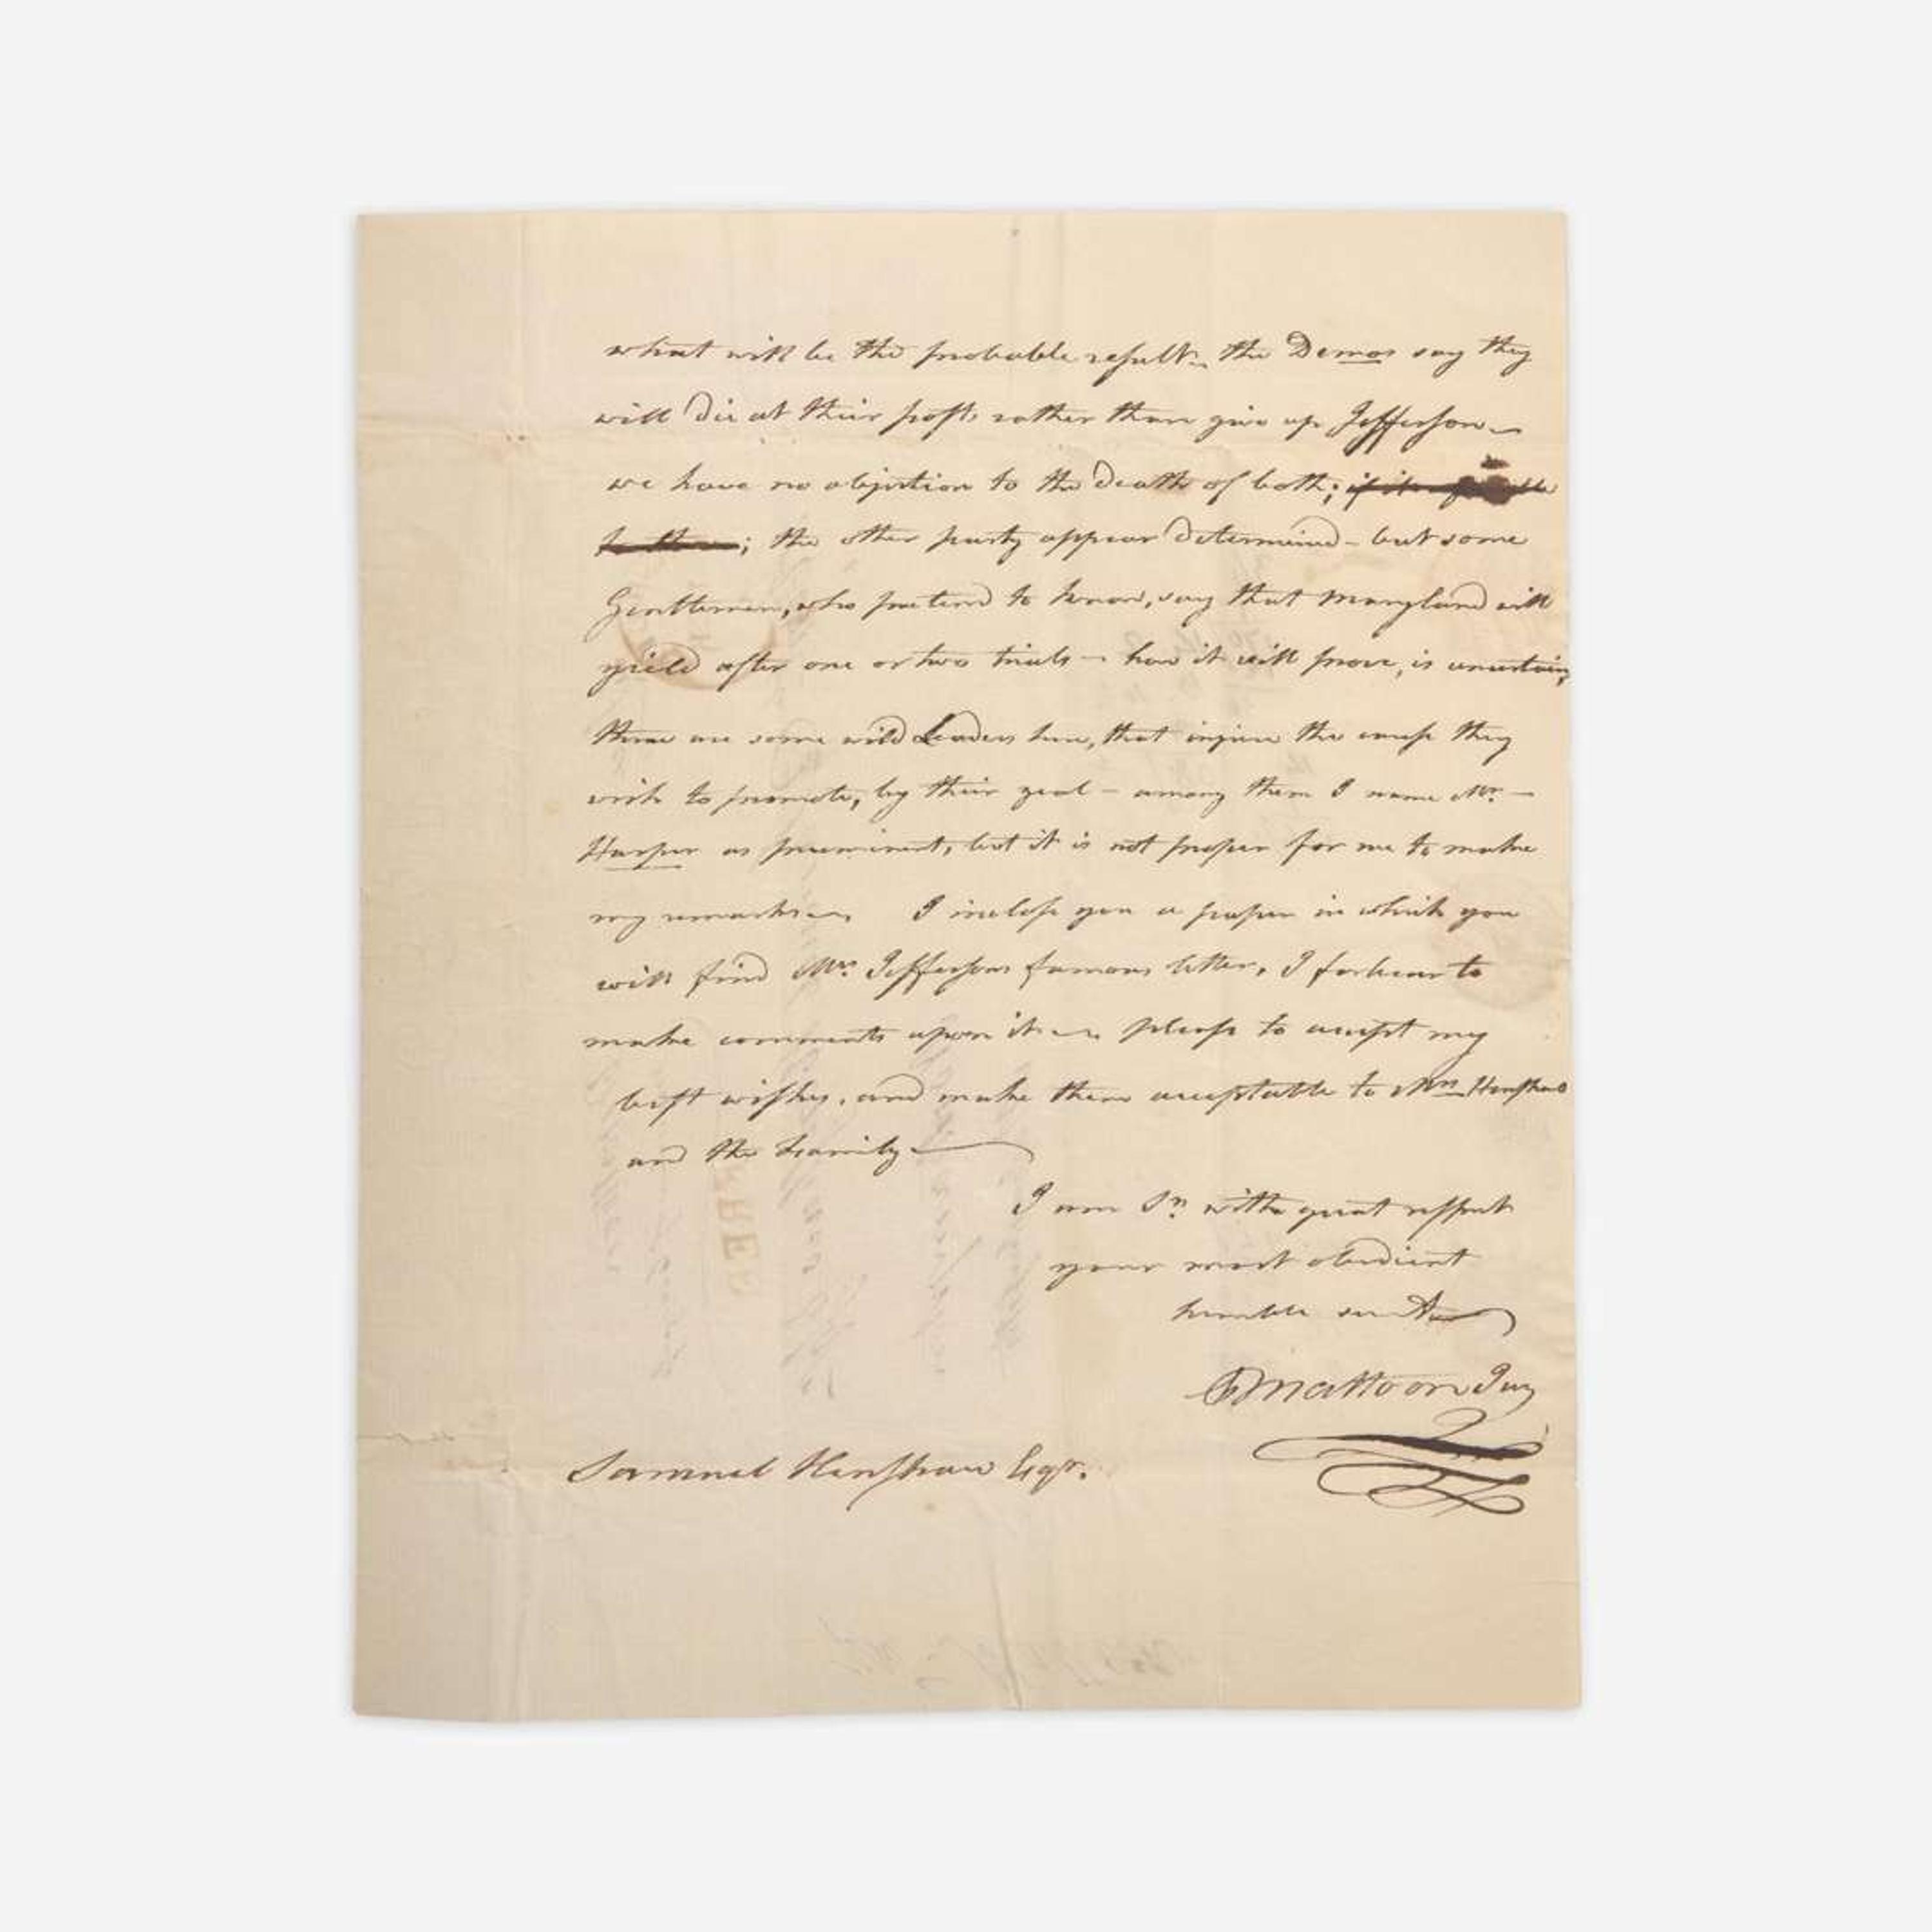 what will be the probable result. the Demos say they
will die at their posts rather than give up Jefferson—
we have no objection to the death of both;
; the other party appear determined – but some
Gentlemen, who pretend to know, say that Maryland will
yield after one or two trials — how it will prove, is uncertain,
there are some wild Leaders here, that injure the cause they
wish to promote, by their zeal – among them I name Mr. —
Harper as preeminent, but it is not proper for me to make
my remarks — I inclose you a paper in which you
will find Mr. Jeffersons famous letter, I forbear to
make comments upon it — please to accept my
best wishes, and make them acceptable to Mrs Henshaw
and the family —
I am Sr. with great respect
your most obedient
humble servt
E Mattoon Jur
Samuel Henshaw Esqr.
FREE